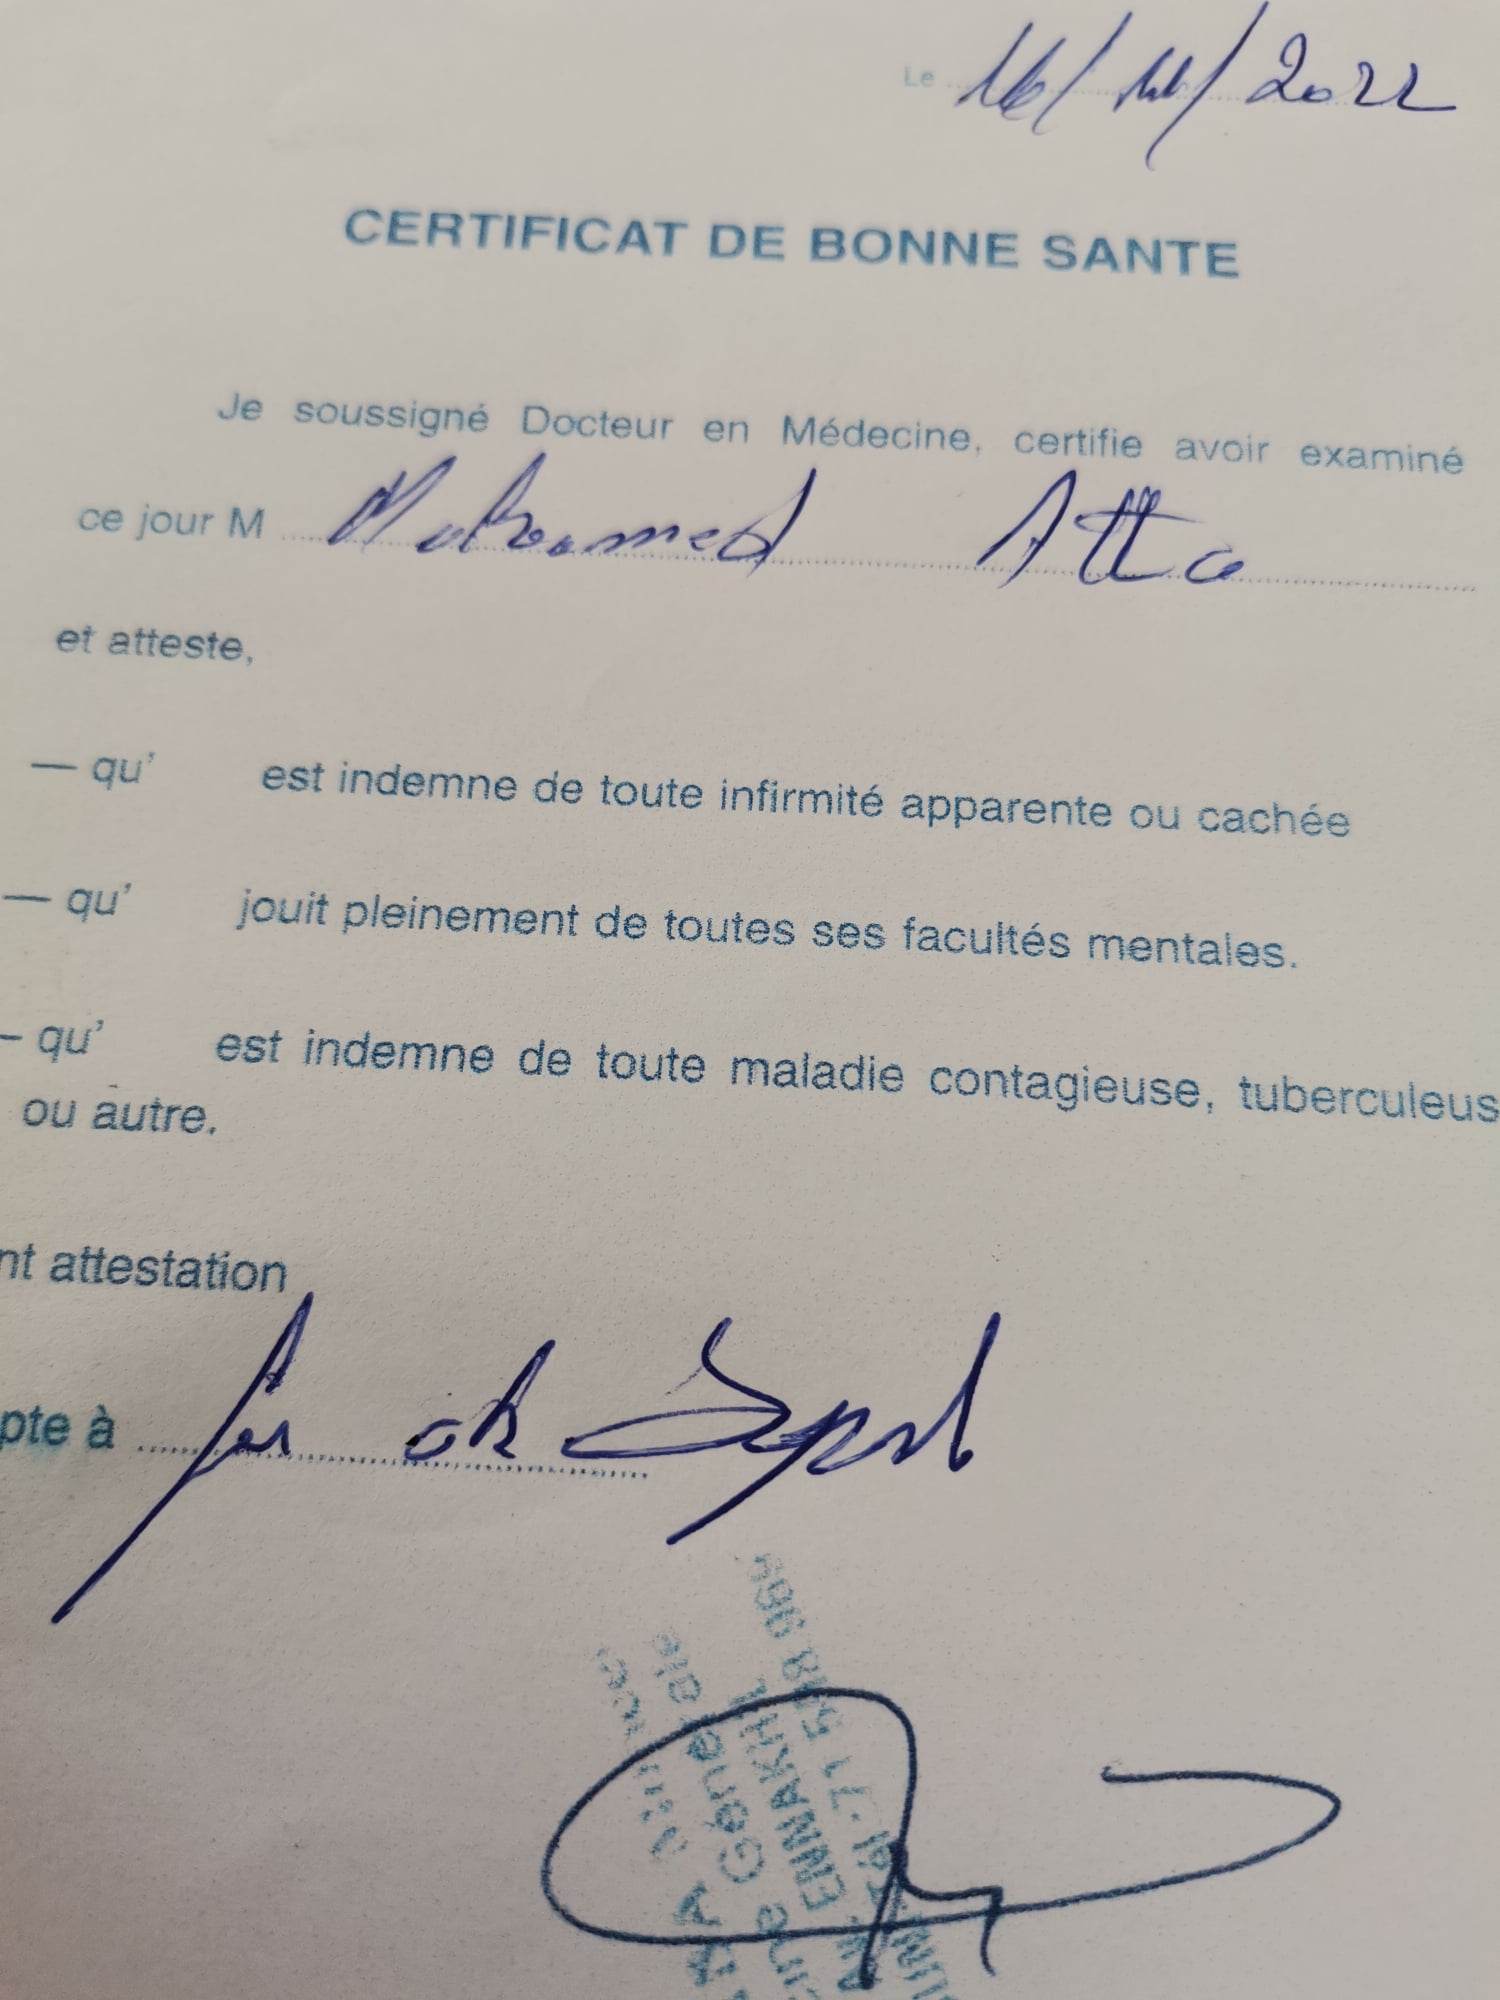 Le 16/11/2022
CERTIFICAT DE BONNE SANTE
Je soussigné Docteur en Médecine, certifie avoir examiné
ce jour M Mohamed Atta
et atteste,
— qu' est indemne de toute infirmité apparente ou cachée
— qu' jouit pleinement de toutes ses facultés mentales.
– qu' est indemne de toute maladie contagieuse, tuberculeus
ou autre.
nt attestation
pte à
Générale
ENNAKHIL
Tél : 71